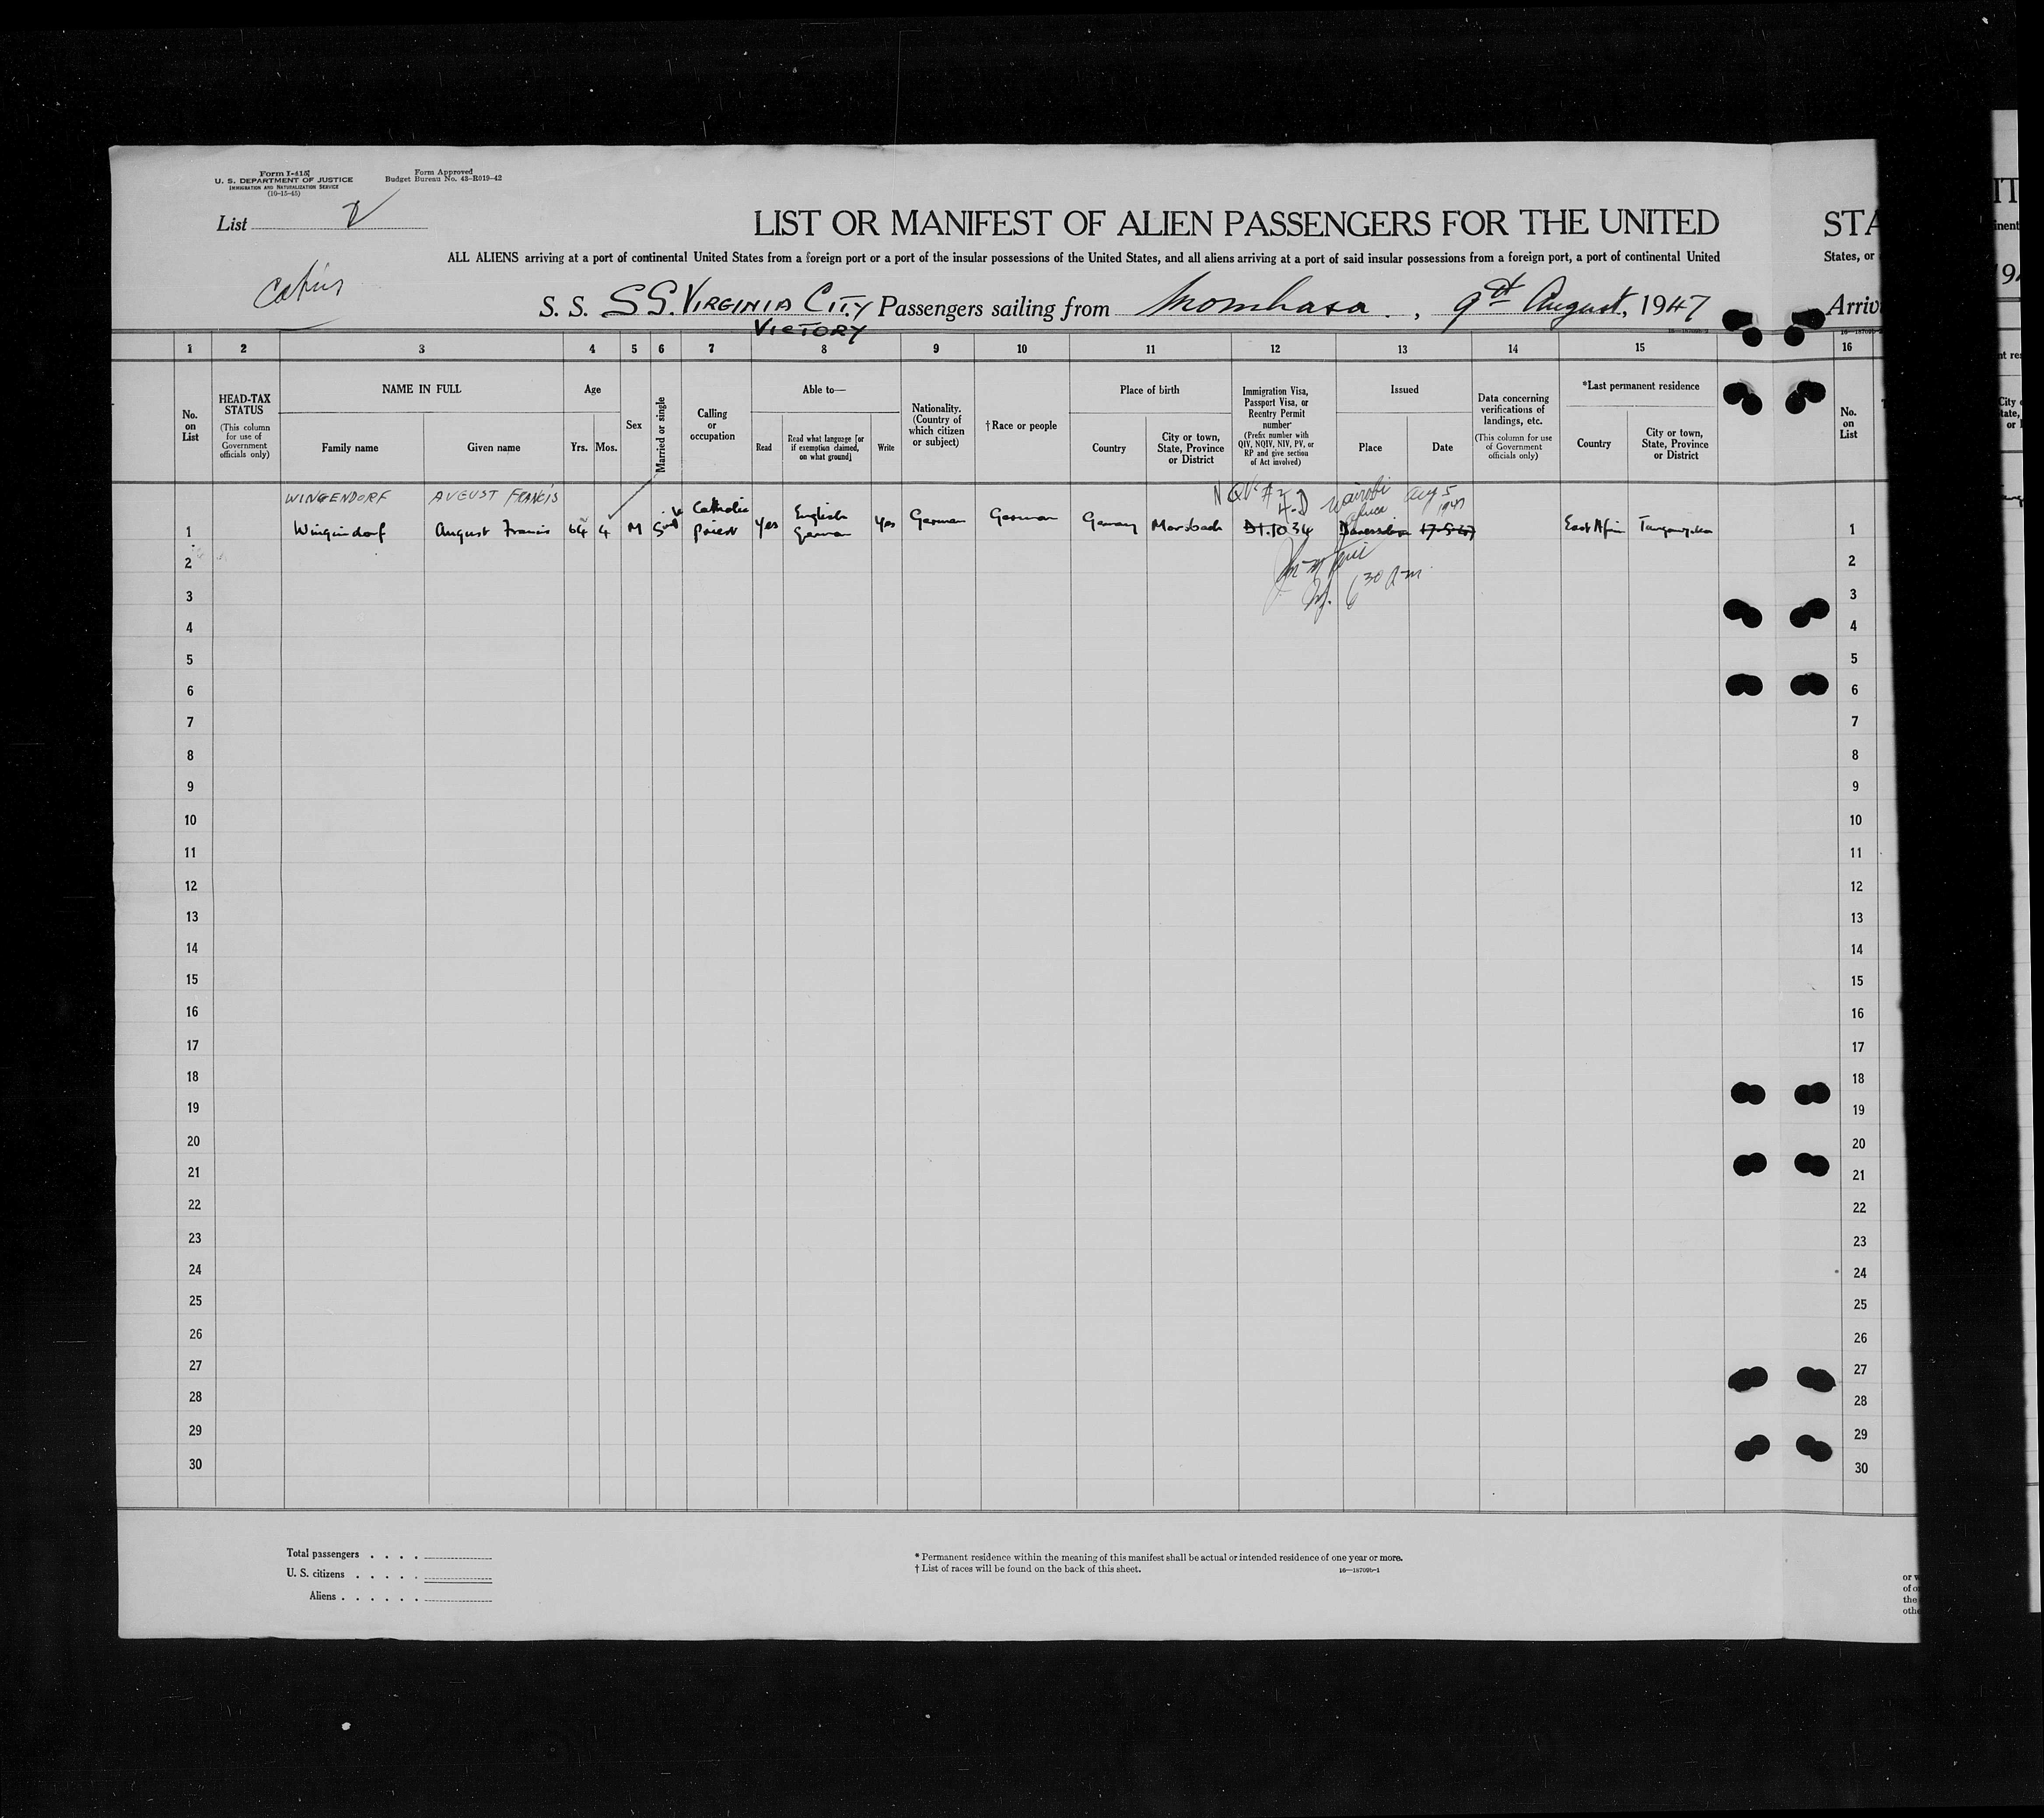 Form I-415
U. S. DEPARTMENT OF JUSTICE
IMMIGRATION AND NATURALIZATION SERVICE
(10-15-45)
Form Approved
Budget Bureau No. 43-R019-42
List
LIST OR MANIFEST OF ALIEN PASSENGERS FOR THE UNITED
STA
ALL ALIENS arriving at a port of continental United States from a foreign port or a port of the insular possessions of the United States, and all aliens arriving at a port of said insular possessions from a foreign port, a port of continental United
States, or
S. S. SS. VIRGINIA CITY Passengers sailing from Mombasa, 9th August, 1947
VICTORY
Arriv
1 2 3 4 5 6 7 8 9 10 11 12 13 14 15 16
No. on List
HEAD-TAX STATUS
(This column for use of Government officials only)
NAME IN FULL
Family name
Given name
Age
Yrs. Mos.
Sex
Married or single
Calling or occupation
Able to—
Read
Read what language [or if exemption claimed, on what ground]
Write
Nationality. (Country of which citizen or subject)
†Race or people
Place of birth
Country
City or town, State, Province or District
Immigration Visa, Passport Visa, or Reentry Permit number
(Prefix number with QIV, NQIV, NIV, PV, or RP and give section of Act involved)
Issued
Place
Date
Data concerning verifications of landings, etc.
(This column for use of Government officials only)
*Last permanent residence
Country
City or town, State, Province or District
No. on List
WINGENDORF AUGUST FRANCIS
Nairobi Aug 5
Africa 1947
1 Wingindorf August Francis 64 4 M Catholic Priest Yes English German Yes German German Morsbach 17-5-47 East Afri 1
6 30 a.m.
2 2
3 3
4 4
5 5
6 6
7 7
8 8
9 9
10 10
11 11
12 12
13 13
14 14
15 15
16 16
17 17
18 18
19 19
20 20
21 21
22 22
23 23
24 24
25 25
26 26
27 27
28 28
29 29
30 30
Total passengers . . . .
U. S. citizens . . . . .
Aliens . . . . . .
* Permanent residence within the meaning of this manifest shall be actual or intended residence of one year or more.
† List of races will be found on the back of this sheet.
16—18709b-1